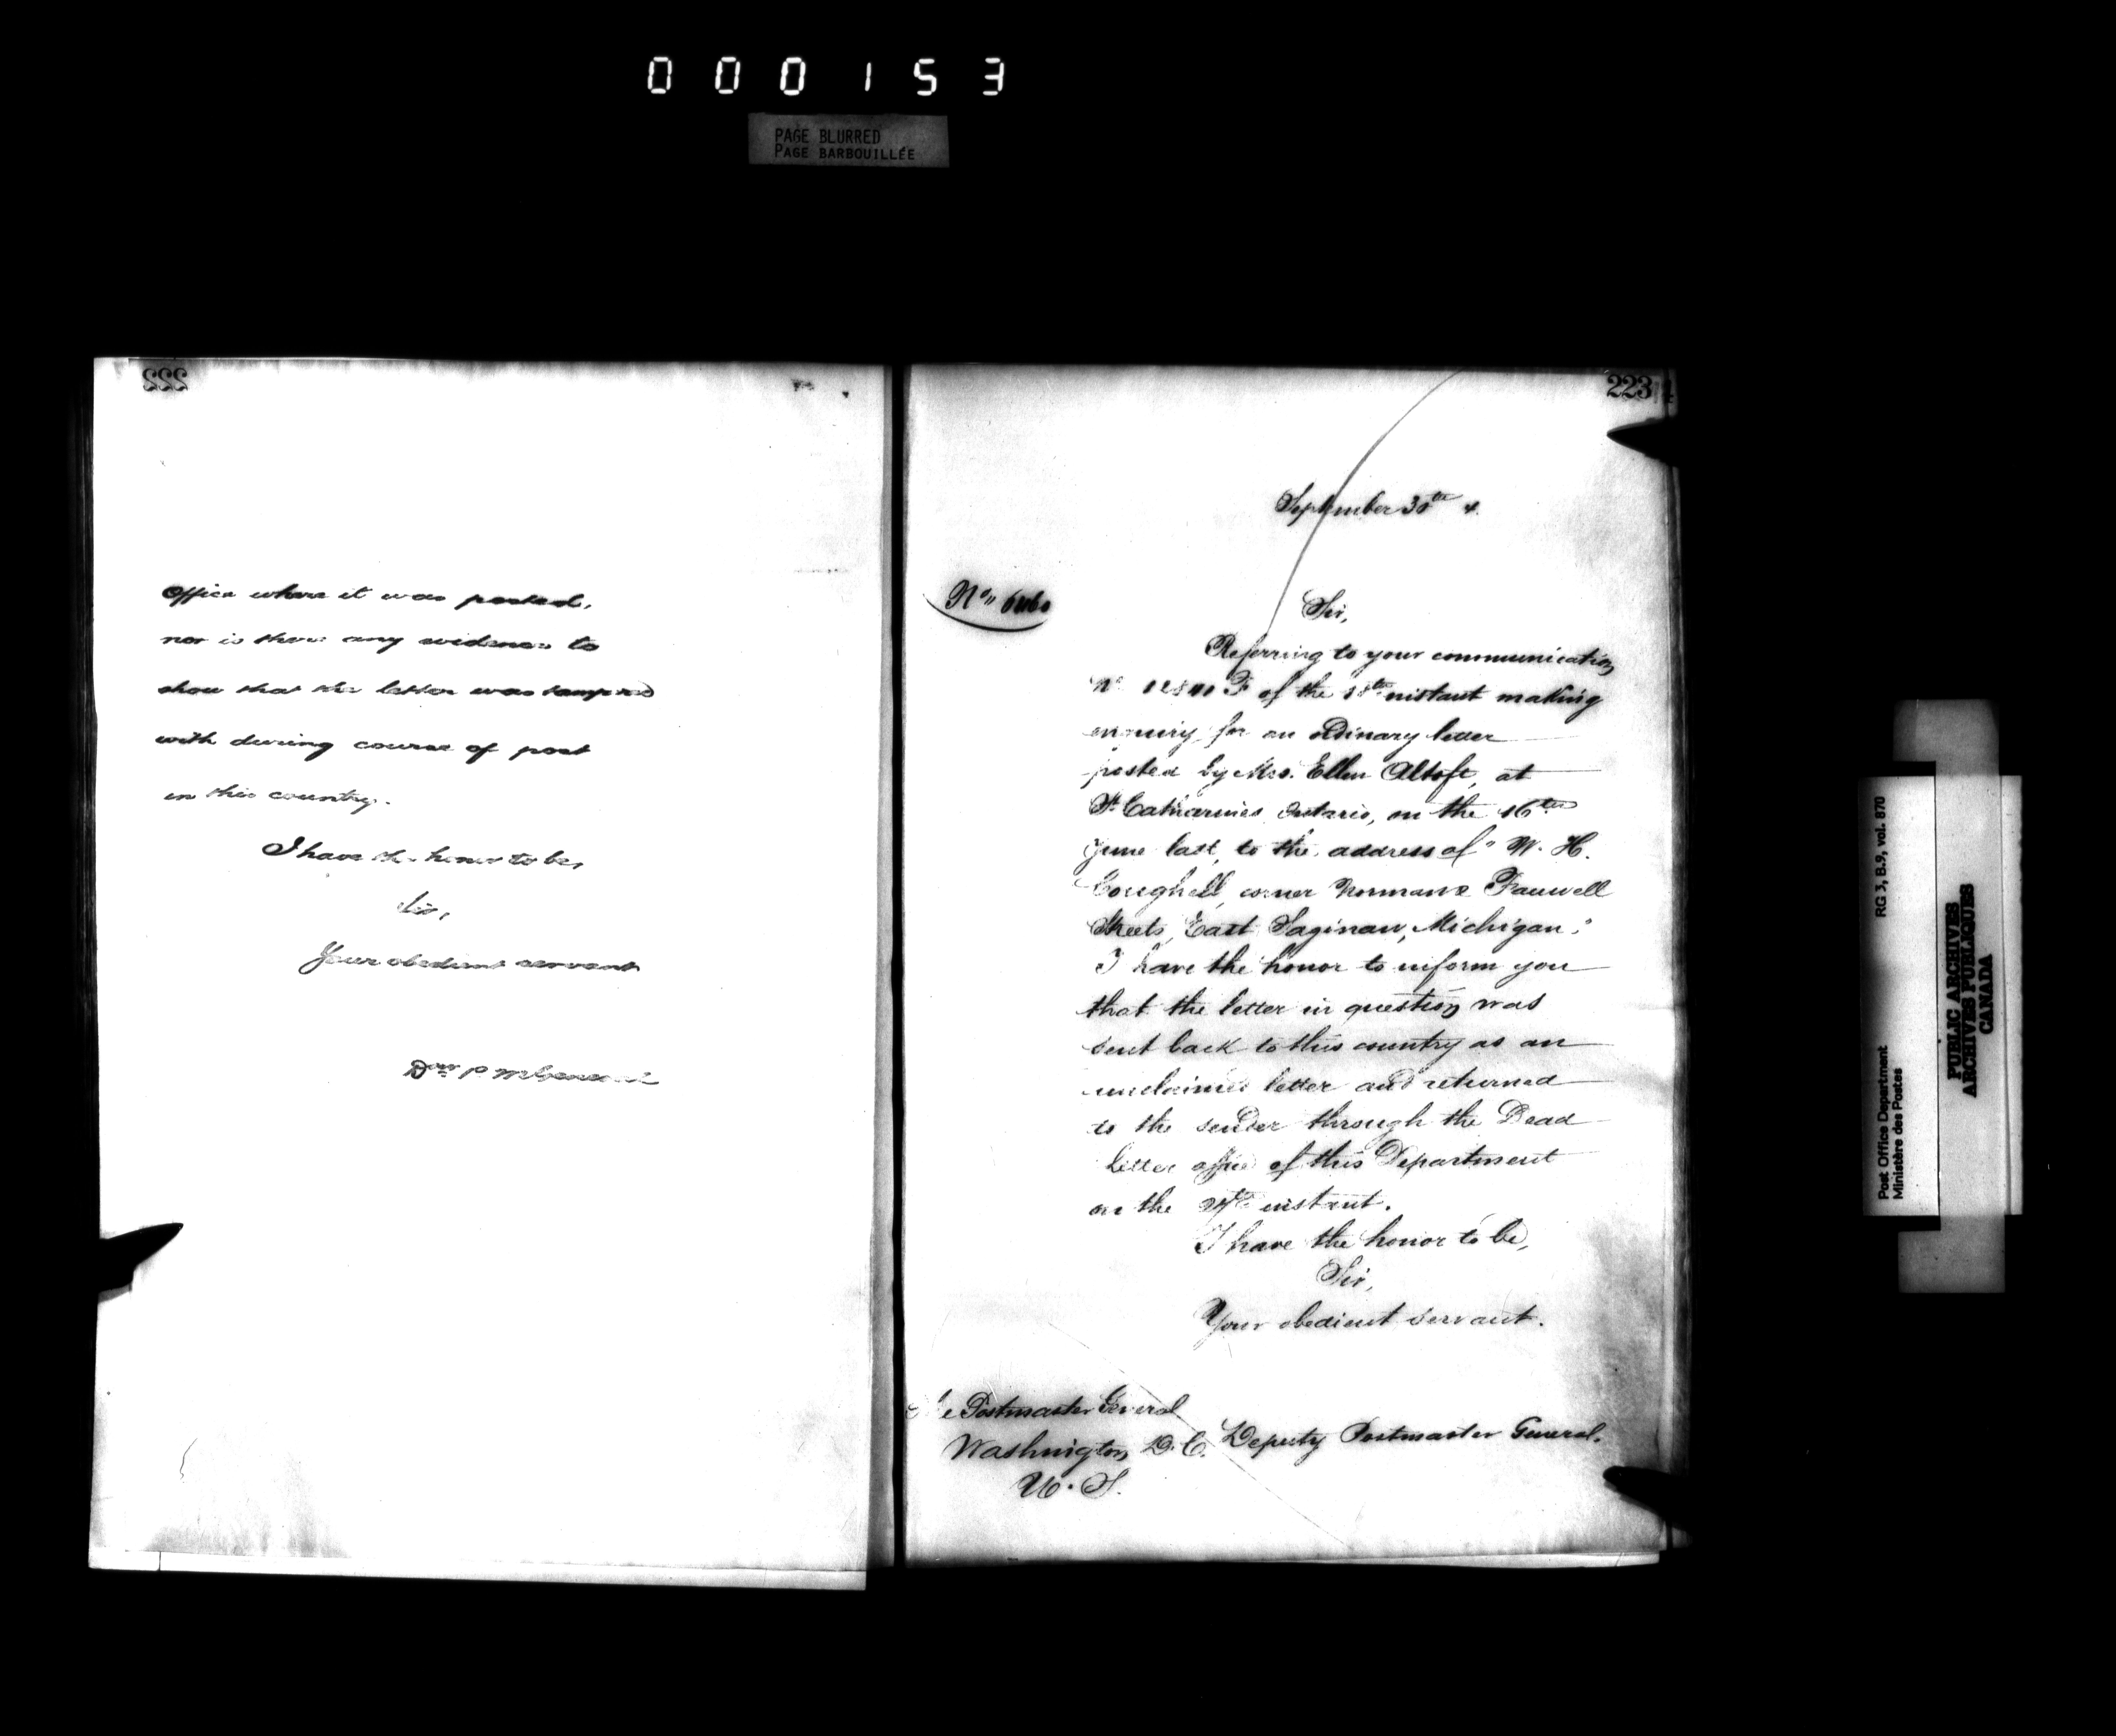 000153
PAGE BLURRED
PAGE BARBOUILLÉE
222
Office where it was posted,
nor is there any evidence to
show that the letter was tampered
with during course of post
in this country.
I have the honor to be,
Sir,
Your obedient servant
223
September 30th 4.
No.
Sir,
Referring to your communication
No F of the instant making
enquiry for an ordinary letter
posted by Mrs. Ellen Altoft, at
St. Catharines Ontario, on the 16th
June last, to the address of "W. H.
Coughell, corner Norman & Farwell
Streets, East Saginaw, Michigan."
I have the honor to inform you
that the letter in question was
sent back to this country as an
unclaimed letter and returned
to the sender through the Dead
letter office of this Department
on the instant.
I have the honor to be,
Sir,
Your obedient servant.
The Postmaster General
Washington, D.C. Deputy Postmaster General.
U.S.
RG 3, B.9, vol. 870
Post Office Department
Ministère des Postes
PUBLIC ARCHIVES
ARCHIVES PUBLIQUES
CANADA